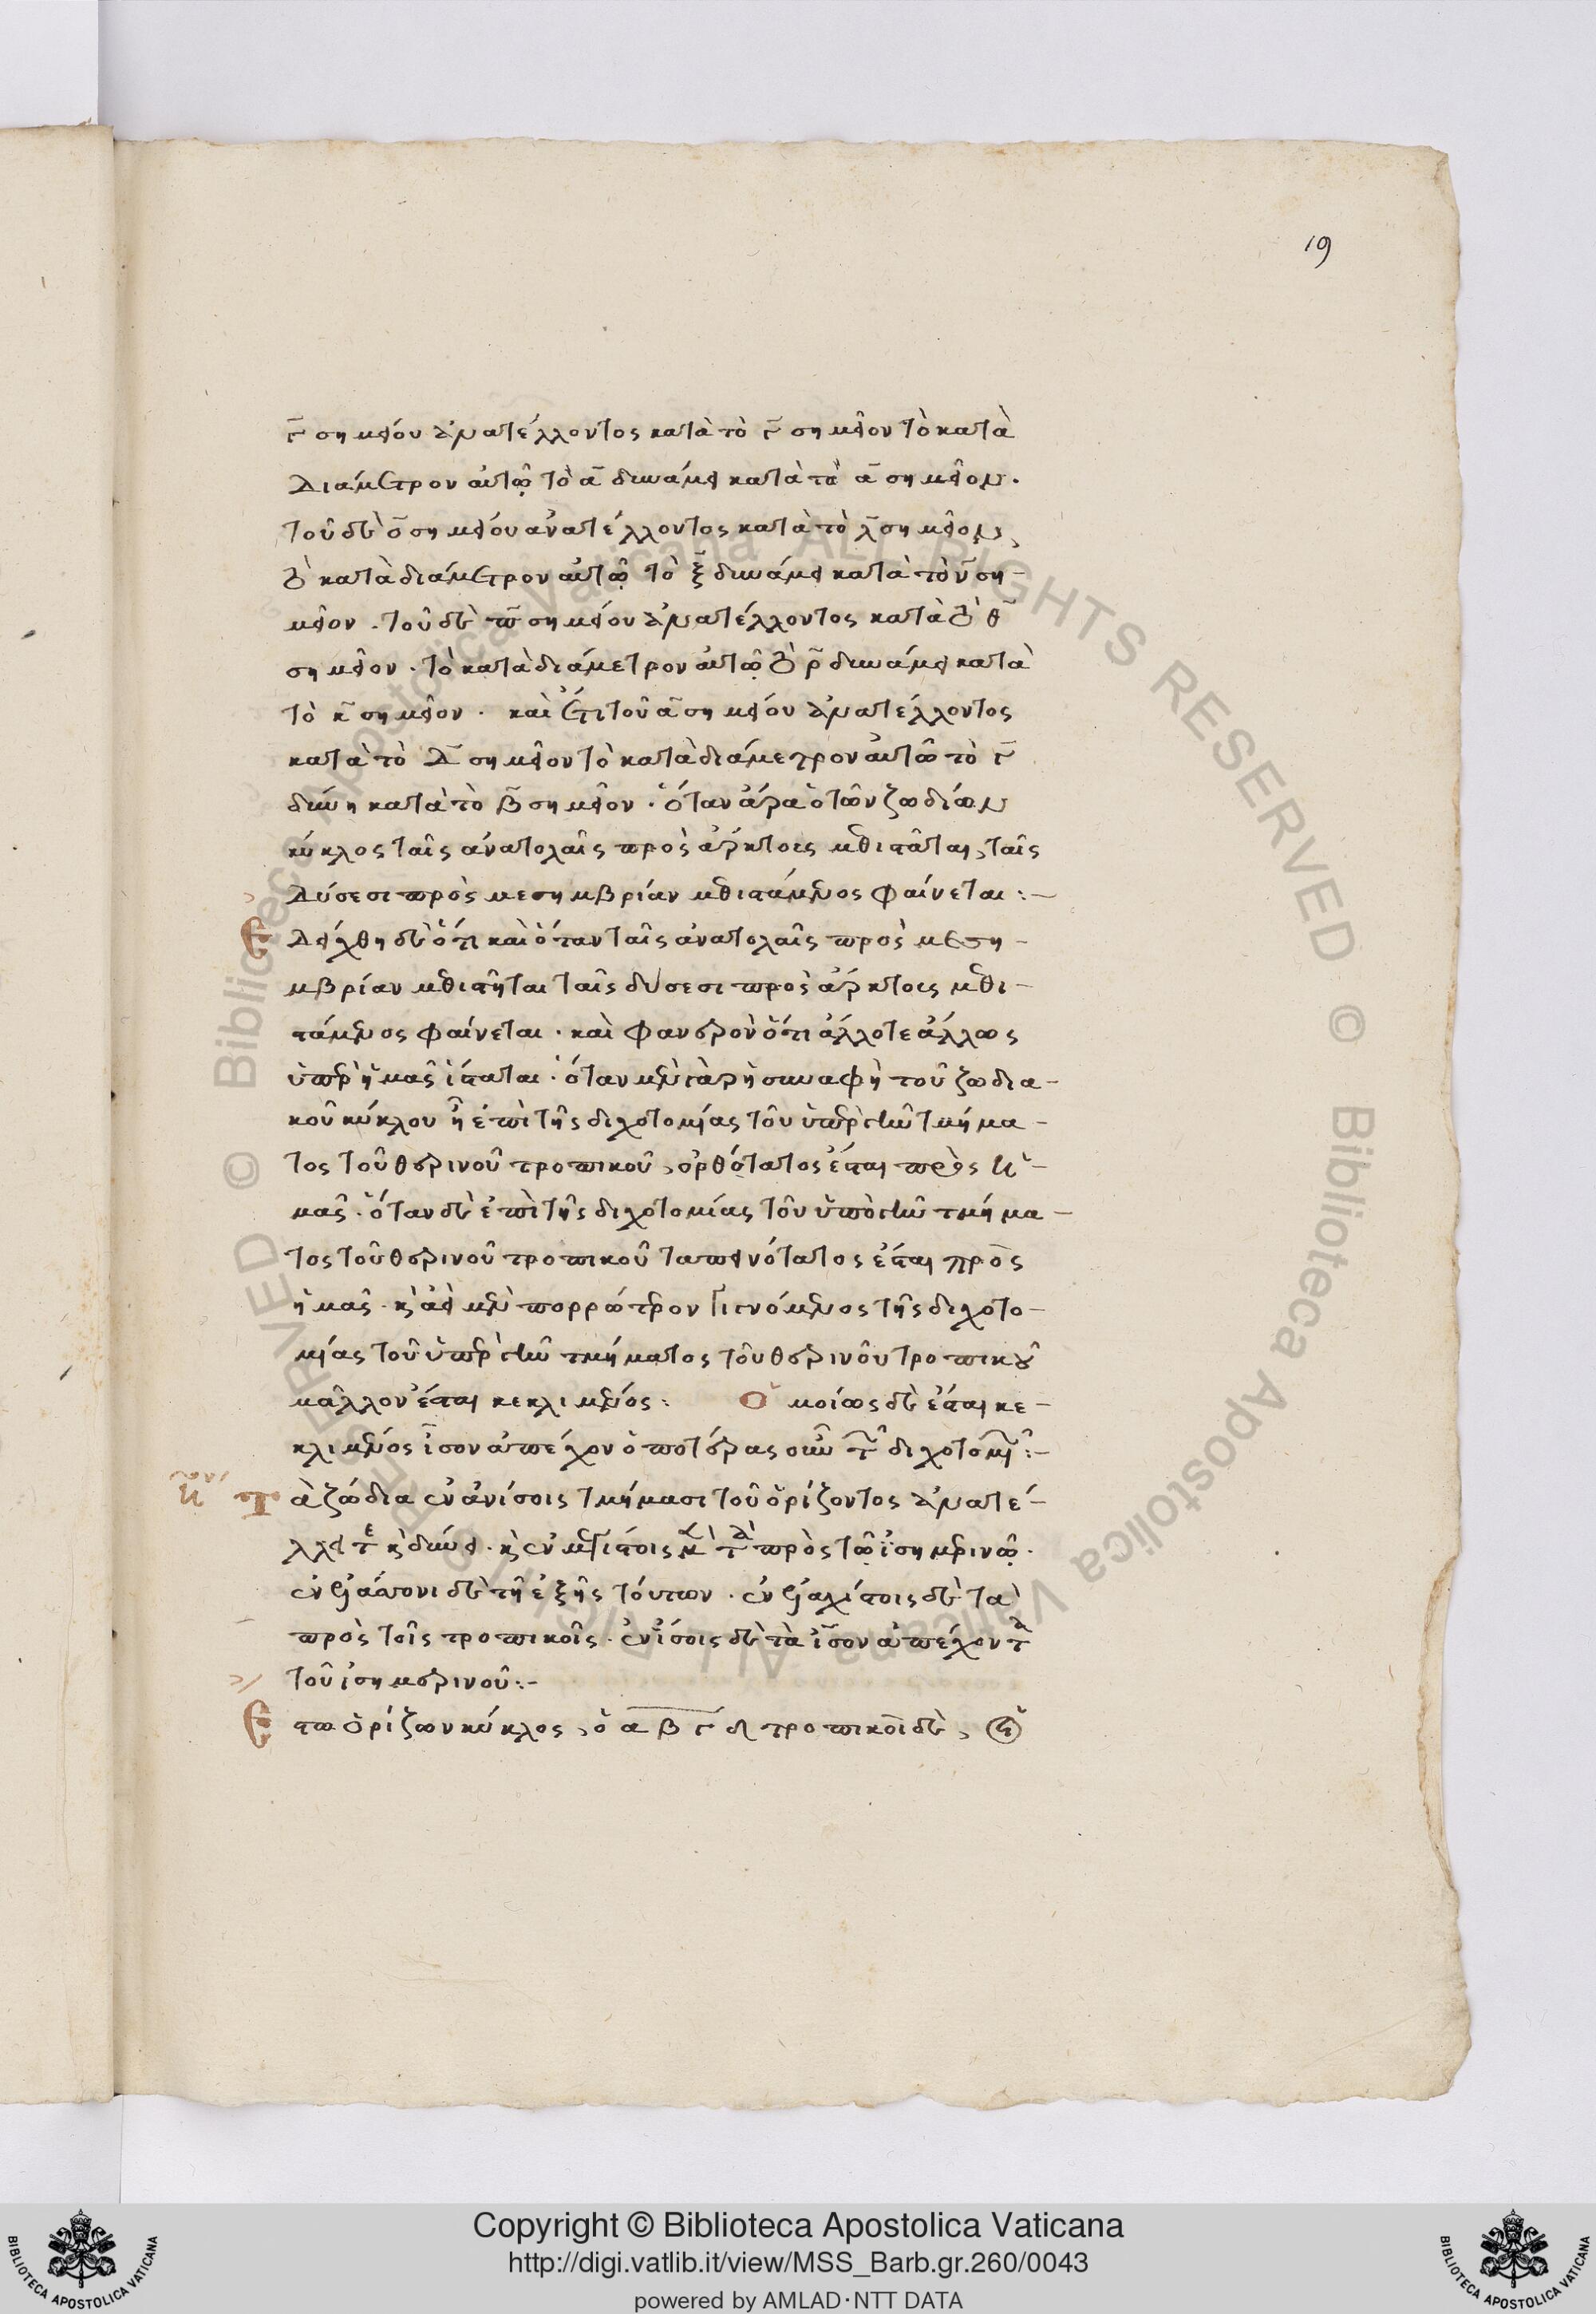 19
γ̄ σημείου ἀνατέλλοντος κατὰ τὸ γ̄ σημεῖον τὸ κατὰ
διάμετρον αὐτῷ τὸ ᾱ δυνάμει κατὰ τὸ ᾱ σημεῖον.
τοῦ δὲ ο̄ σημείου ἀνατέλλοντος κατὰ τὸ λ̄ σημεῖον,
τὸ κατὰ διάμετρον αὐτῷ τὸ ξ̄ δυνάμει κατὰ τὸ ν̄ ση-
μεῖον. τοῦ δὲ π̄ σημείου ἀνατέλλοντος κατὰ τὸ θ̄
σημεῖον. τὸ κατὰ διάμετρον αὐτῷ τὸ ρ̄ δυνάμει κατὰ
τὸ κ̄ σημεῖον. καὶ ἔτι τοῦ ᾱ σημείου ἀνατέλλοντος
κατὰ τὸ δ̄ σημεῖον τὸ κατὰ διάμετρον αὐτῶ τὸ γ̄
δύνη κατὰ τὸ β̄ σημεῖον. ὅταν ἄρα ὁ τῶν ζωδίων
κύκλος ταῖς ἀνατολαῖς πρὸς ἄρκτοις μεθιστᾶται, ταῖς
δύσεσι πρὸς μεσημβρίαν μεθιστάμενος φαίνεται:–
Ἐδείχθη δὲ ὅτι καὶ ὅταν ταῖς ἀνατολαῖς πρὸς μεση-
μβρίαν μεθιστῆται ταῖς δύσεσι πρὸς ἄρκτοις μεθι-
στάμενος φαίνεται. καὶ φανερὸν ὅτι ἄλλοτε ἄλλως
ὑπὲρ ἡμᾶς ἵσταται. ὅταν μὲν γὰρ ἡ συναφὴ τοῦ ζωδια-
κοῦ κύκλου ἦ ἐπὶ τῆς διχοτομίας τοῦ ὑπὲρ γῆν τμήμα-
τος τοῦ θερινοῦ τροπικοῦ, ὀρθότατος ἔσται πρὸς ἡ-
μᾶς. ὅταν δὲ ἐπὶ τῆς διχοτομίας τοῦ ὑπὸ γῆν τμήμα-
τος τοῦ θερινοῦ τροπικοῦ ταπεινότατος ἔσται πρὸς
ἡμᾶς. κ̀ ἀεὶ μὲν πορρώτερον γινόμενος τῆς διχοτο-
μίας τοῦ ὑπὲρ γῆν τμήματος τοῦ θερινοῦ τροπικοῦ
μᾶλλον ἔσται κεκλιμένος: Ὁμοίως δὲ ἔσται κε-
κλιμένος ἴσον ἀπέχον ὁποτέρας οὖν τ῀ διχοτομι῀:–
Τὰ ζώδια ἐν ἀνίσοις τμήμασι τοῦ ὁρίζοντος ἀνατέ-
λλει τε κ̀ δύνει. κ̀ ἐν μεγίστοις μὲν τὰ πρὸς τῷ ἰσημερινῷ.
ἐν ἐλάσσονι δὲ τῆ ἑξῆς τούτων. ἐν ἐλαχίστοις δὲ τὰ
πρὸς τοῖς τροπικοῖς. ἐν ἴσοις δὲ τὰ ἴσον ἀπέχοντα
τοῦ ἰσημερινοῦ:–
Ἔστω ὁρίζων κύκλος, ὁ α β γ δ τροπικοὶ δὲ,
Copyright © Biblioteca Apostolica Vaticana
http://digi.vatlib.it/view/MSS_Barb.gr.260/0043
powered by AMLAD·NTT DATA